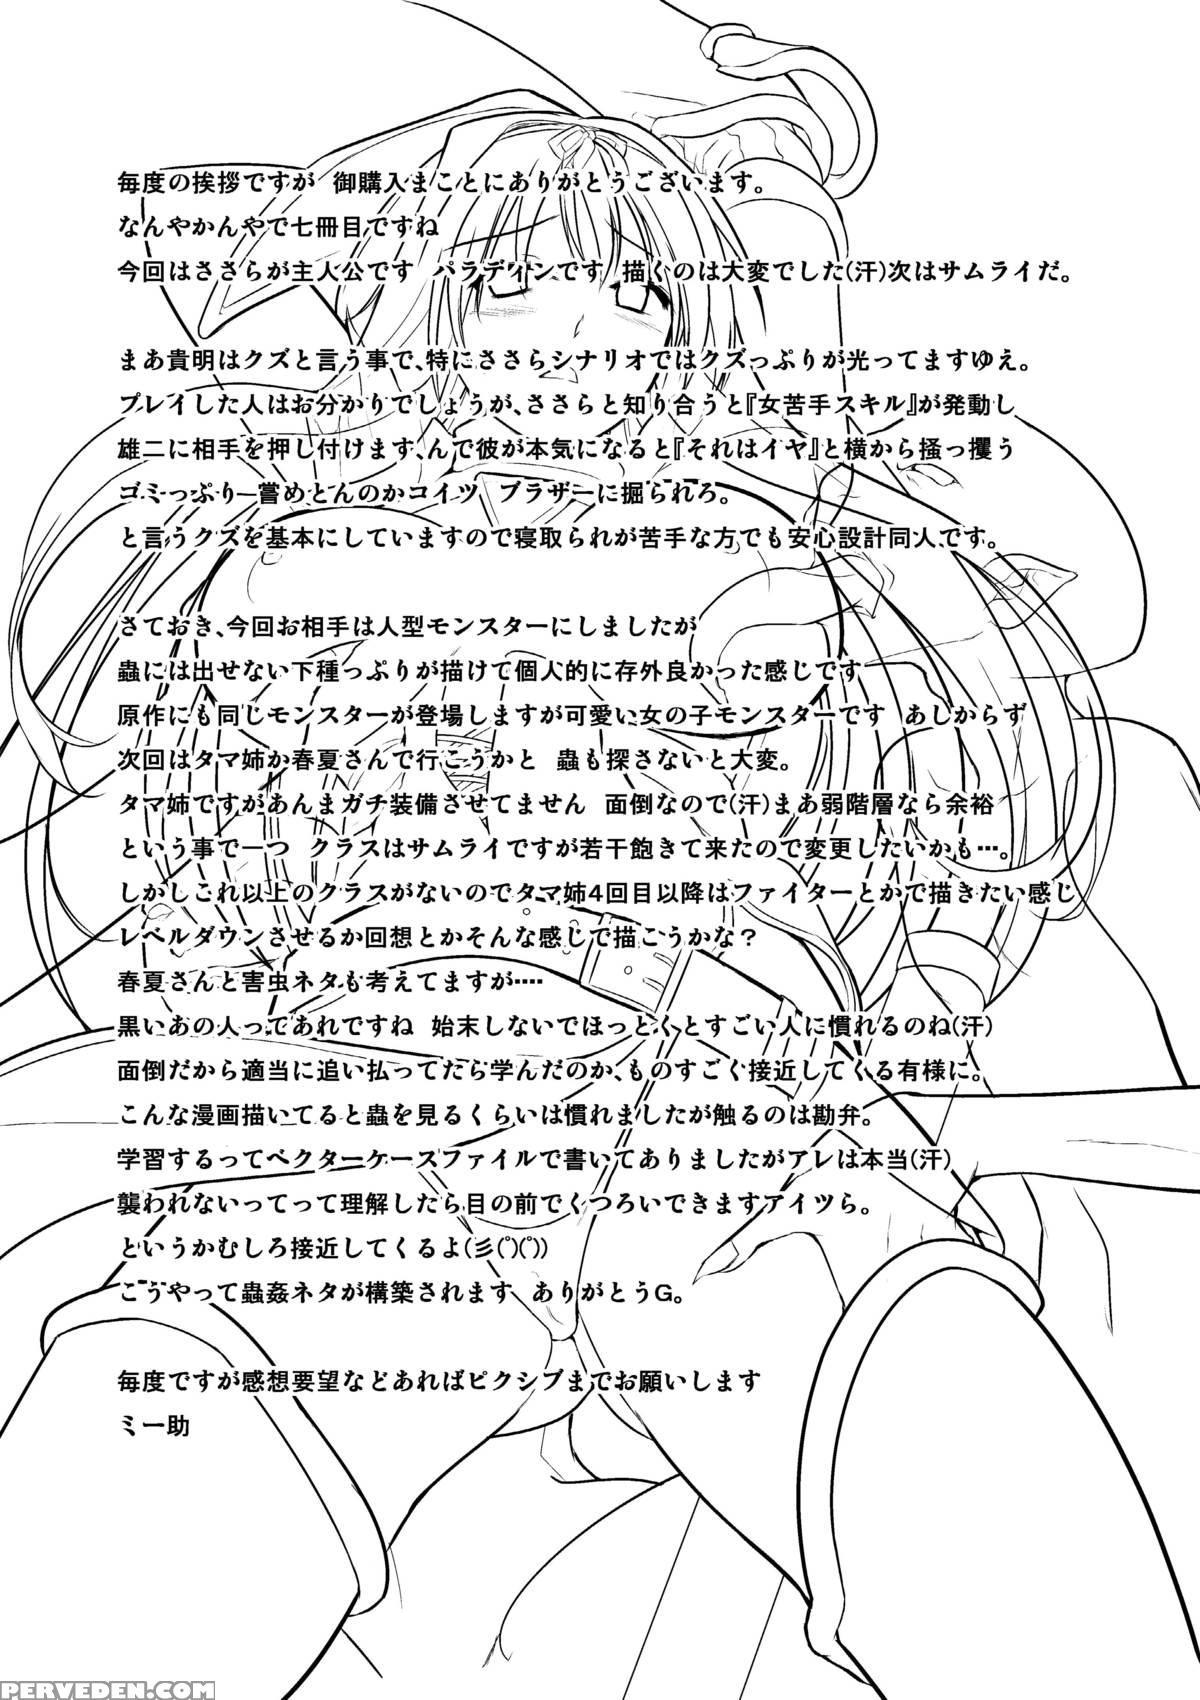 毎度の挨拶ですが　御購入まことにありがとうございます。
なんやかんやで七冊目ですね
今回はささらが主人公です　パラディンです　描くのは大変でした(汗)次はサムライだ。
まあ貴明はクズと言う事で、特にささらシナリオではクズっぷりが光ってますゆえ。
プレイした人はお分かりでしょうが、ささらと知り合うと『女苦手スキル』が発動し
雄二に相手を押し付けます、んで彼が本気になると『それはイヤ』と横から掻っ攫う
ゴミっぷり―嘗めとんのかコイツ　ブラザーに掘られろ。
と言うクズを基本にしていますので寝取られが苦手な方でも安心設計同人です。
さておき、今回お相手は人型モンスターにしましたが
蟲には出せない下種っぷりが描けて個人的に存外良かった感じです
原作にも同じモンスターが登場しますが可愛い女の子モンスターです　あしからず
次回はタマ姉か春夏さんで行こうかと　蟲も探さないと大変。
タマ姉ですがあんまガチ装備させてません　面倒なので(汗)まあ弱階層なら余裕
という事で一つ　クラスはサムライですが若干飽きて来たので変更したいかも…。
しかしこれ以上のクラスがないのでタマ姉4回目以降はファイターとかで描きたい感じ
レベルダウンさせるか回想とかそんな感じで描こうかな？
春夏さんと害虫ネタも考えてますが‥‥
黒いあの人ってあれですね　始末しないでほっとくとすごい人に慣れるのね(汗)
面倒だから適当に追い払ってたら学んだのか、ものすごく接近してくる有様に。
こんな漫画描いてると蟲を見るくらいは慣れましたが触るのは勘弁。
学習するってベクターケースファイルで書いてありましたがアレは本当(汗)
襲われないってって理解したら目の前でくつろいできますアイツら。
というかむしろ接近してくるよ(彡(ﾟ)(ﾟ))
こうやって蟲姦ネタが構築されます　ありがとうG。
毎度ですが感想要望などあればピクシブまでお願いします
ミー助
PERVEDEN.COM